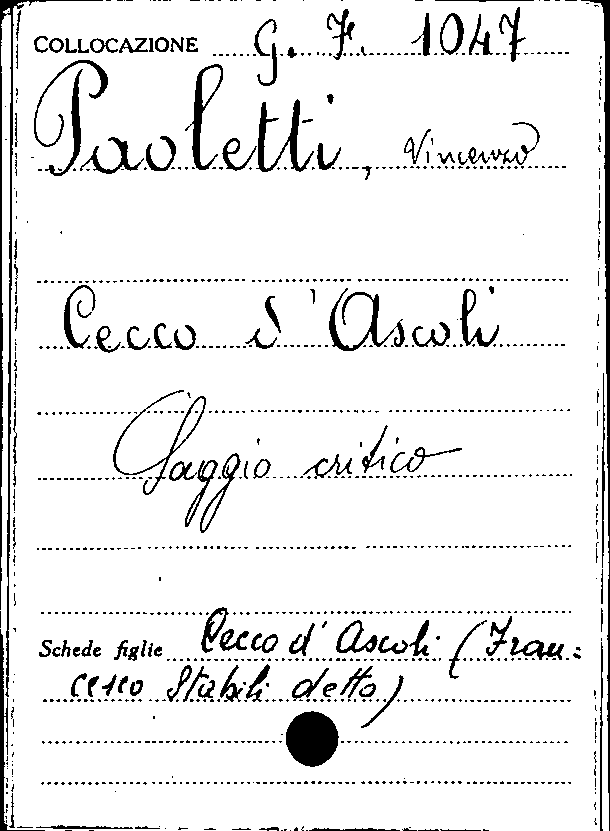 COLLOCAZIONE G. F. 1047
Paoletti, Vincenzo
Cecco d'Ascoli
Saggio critico
Schede figlie Cecco d'Ascoli (Fran=
cesco Stabili detto)